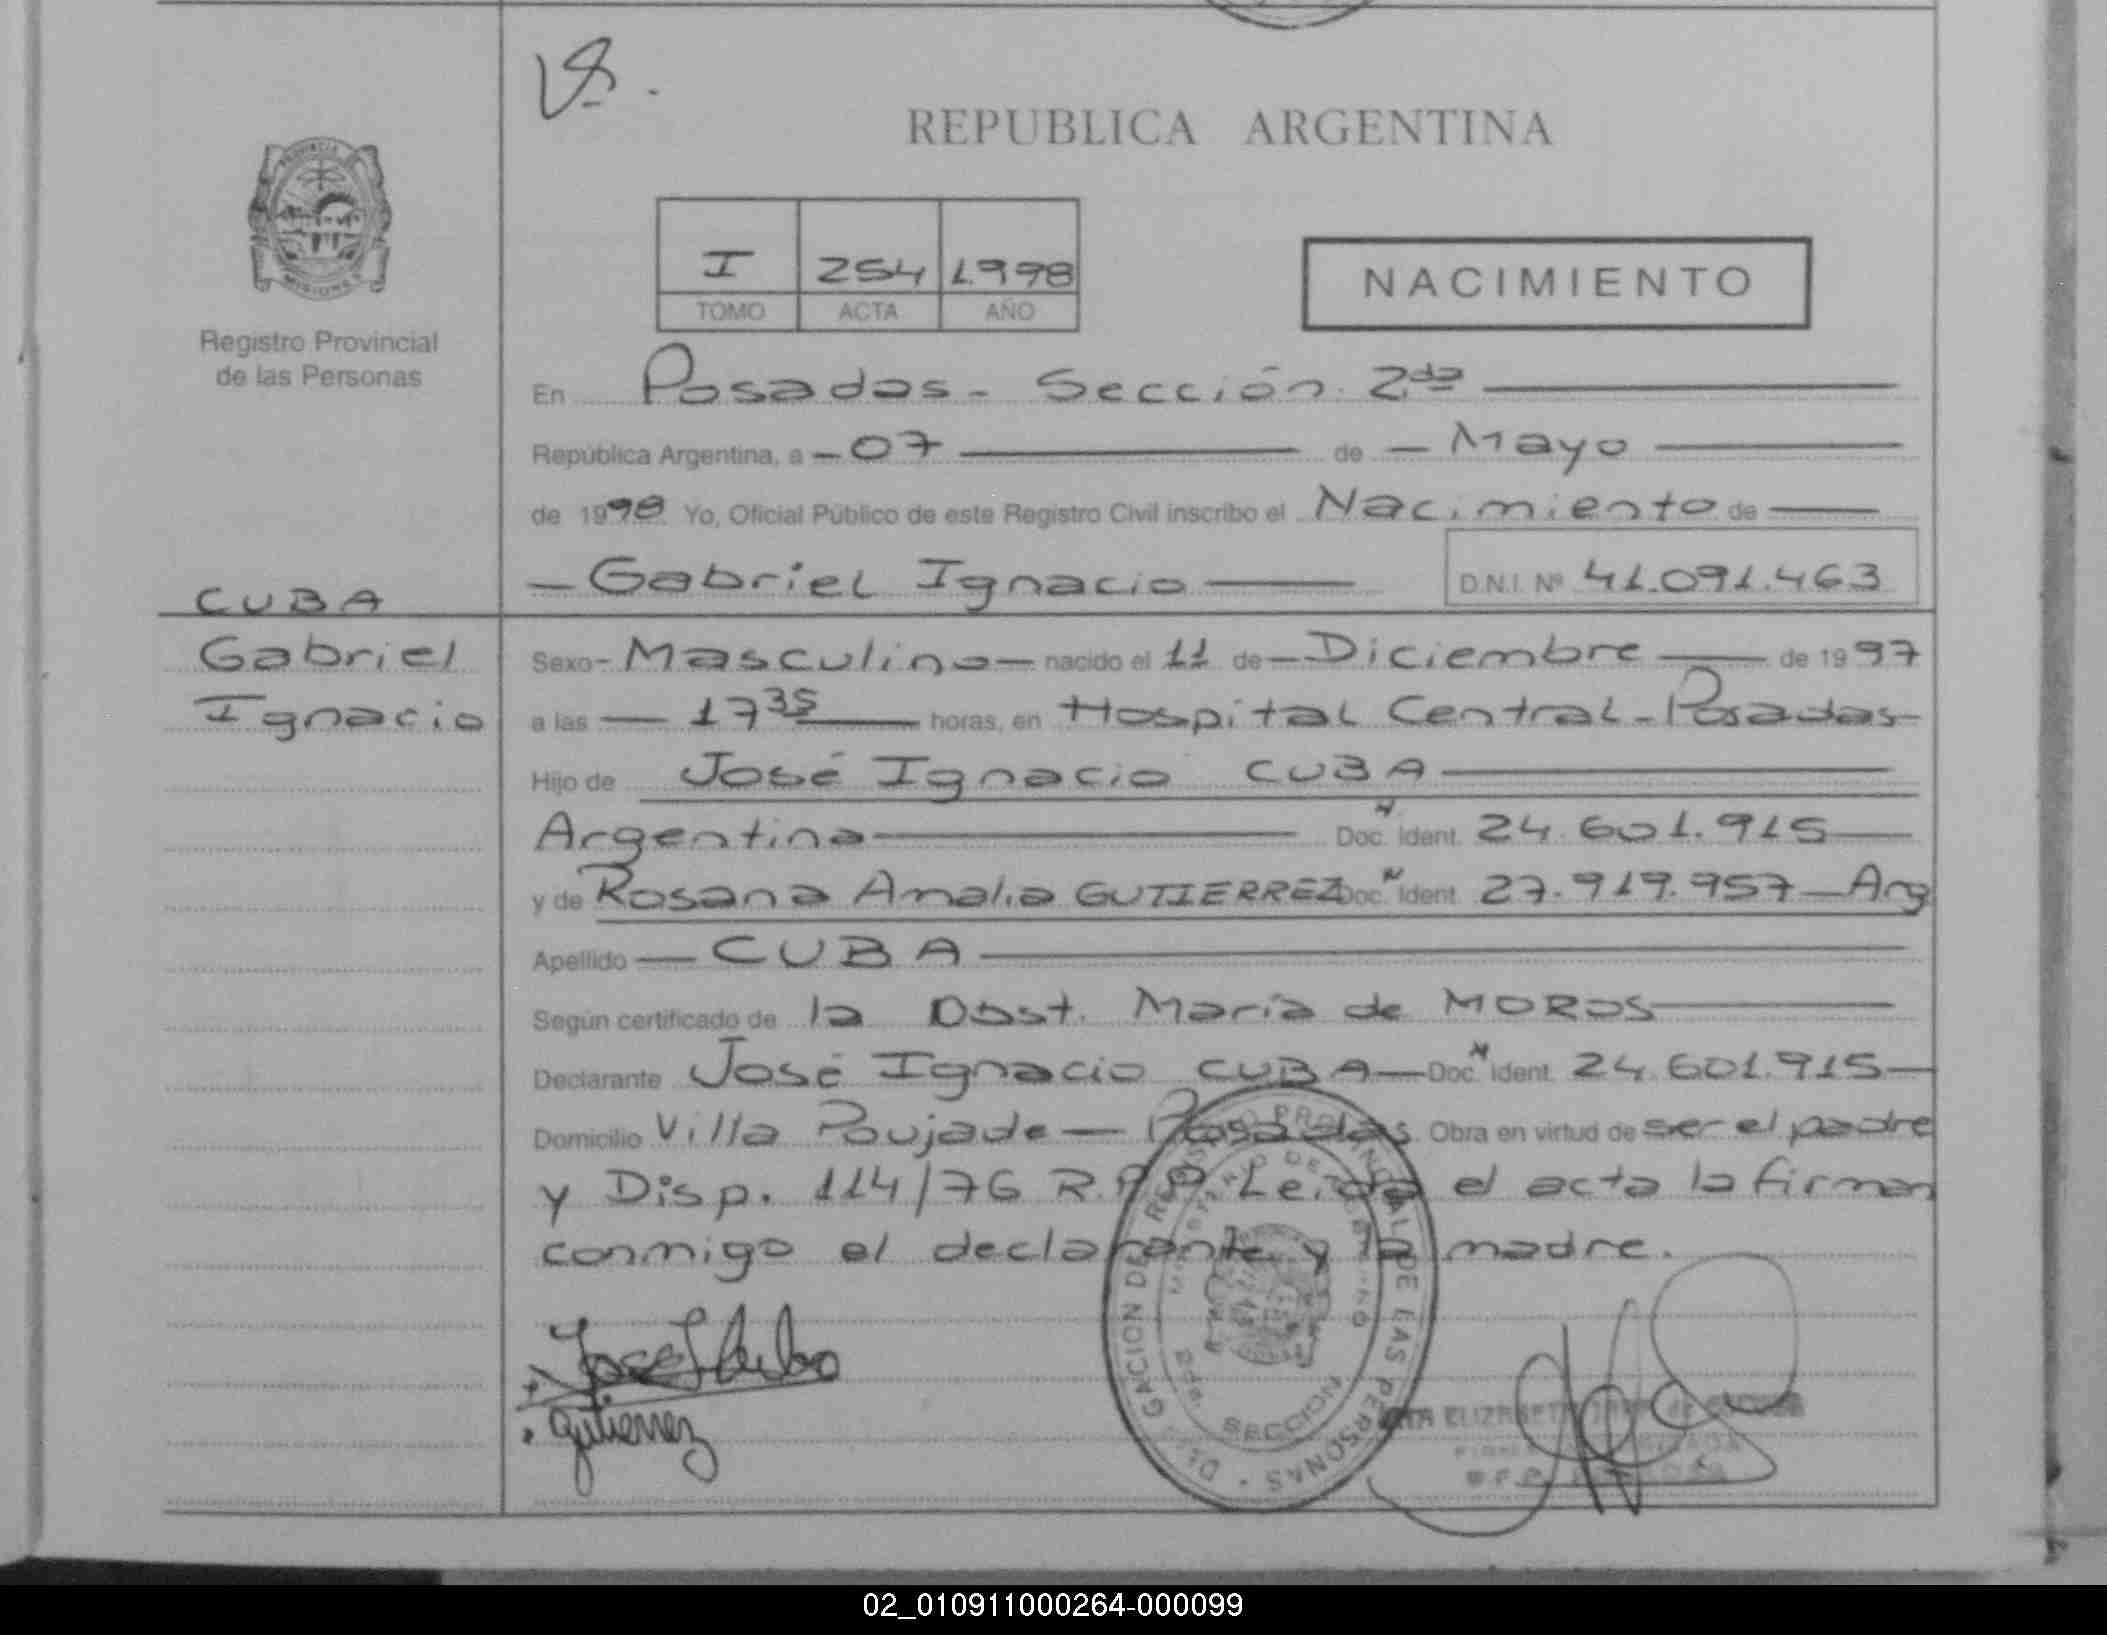 REPUBLICA ARGENTINA
PROVINCIA DE
MISIONES
Registro Provincial
de las Personas
I 254 1998
TOMO ACTA AÑO
NACIMIENTO
En Posadas - Sección 2da
República Argentina, a - 07 de - Mayo
de 1998 Yo, Oficial Público de este Registro Civil inscribo el Nacimiento de
- Gabriel Ignacio D.N.I. Nº 41.091.463
CUBA
Gabriel
Ignacio
Sexo - Masculino - nacido el 11 de - Diciembre de 1997
a las - 17 35 horas, en Hospital Central - Posadas -
Hijo de José Ignacio CUBA
Argentina Doc. Ident. 24.601.915
y de Rosana Amalia GUTIERREZ Doc. Ident. 27.919.957 - Arg
Apellido - CUBA
Según certificado de la Obst. María de MOROS
Declarante José Ignacio CUBA - Doc. Ident. 24.601.915 -
Domicilio Villa Poujade - Posadas. Obra en virtud de ser el padre
y Disp. 114/76 R.P.P. Leida el acta la firman
conmigo el declarante y la madre.
Jose I Cuba
Gutierrez
DELEGACION DE REGISTRO PROVINCIAL DE LAS PERSONAS
MINISTERIO DE GOBIERNO
2da. SECCION
02_010911000264-000099